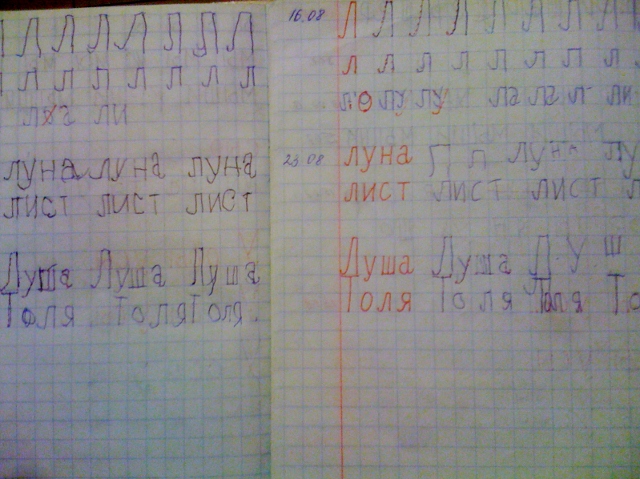 Л Л Л Л Л Л Л Л
л л л л л л л л
ли
луна луна луна
лист лист лист
Луша Луша Луша
Толя Толя Толя
16.08 Л Л Л Л Л Л Л Л Л
л л л л л л л л л
ло лу лу ли
23.08 луна П п луна лу
лист лист лист л
Луша Луша Л У ш
Толя Толя Толя То